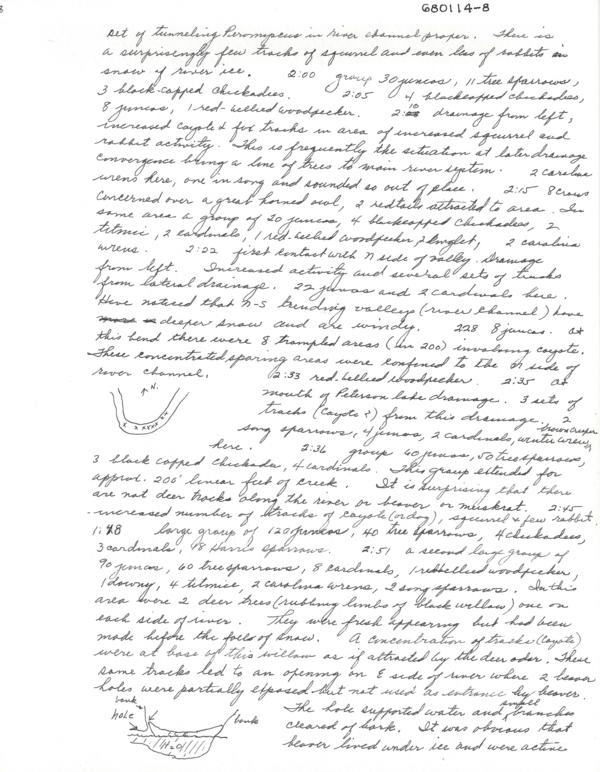 680114-8
set of tunneling Peromyscus in river channel proper. There is
a surprisingly few tracks of squirrel and even less of rabbits in
snow of river ice. 2:00 group 30 juncos, 11 tree sparrows,
3 black-capped chickadees. 2:05 4 blackcapped chickadees,
8 juncos, 1 red-bellied woodpecker. 2:10 drainage from left,
increased coyote & fox tracks in area of increased squirrel and
rabbit activity. This is frequently the situation at later drainage
convergence bring a line of trees to main river system. 2 carolina
wrens here, one in song and sounded so out of place. 2:15 8 crows
concerned over a great horned owl, 2 redtails attracted to area. In
same area a group of 20 juncos, 4 blackcapped chickadees, 2
titmice, 2 cardinals, 1 red-bellied woodpecker, 2 kinglet, 2 carolina
wrens. 2:22 first contact with N side of valley. Drainage
from left. Increased activity and several sets of tracks
from lateral drainage. 22 juncos and 2 cardinals here.
Have noticed that N-S trending valleys (river channel) have
deeper snow and are windy. 228 8 juncos. At
this bend there were 8 trampled areas (in 200) involving coyote.
These concentrated sparing areas were confined to the N side of
river channel. 2:33 red-bellied woodpecker. 2:35 at
N.
mouth of Peterson lake drainage. 3 sets of
tracks (coyote ?) from this drainage. 2
brown creeper
song sparrows, 4 juncos, 2 cardinals, winter wren
x x xxxx x
here. 2:36 group 60 juncos, 50 tree sparrows,
3 black capped chickadee, 4 cardinals. This group extended for
approx. 200' linear feet of creek. It is surprising that there
are not deer tracks along the river or beaver or muskrat. 2:45
increased number of tracks of coyote (or dog), squirrel & few rabbit.
large group of 120 juncos, 40 tree sparrows, 4 chickadees,
3 cardinals, 18 Harris sparrows. 2:51 a second large group of
90 juncos, 60 tree sparrows, 8 cardinals, 1 redbellied woodpecker,
1 downy, 4 titmice, 2 carolina wrens, 2 song sparrows. In this
area were 2 deer trees (rubbing limbs of black willow) one on
each side of river. They were fresh appearing but had been
made before the falls of snow. A concentration of tracks (coyote)
were at base of this willow as if attracted by the deer odor. These
same tracks led to an opening on E side of river where 2 beaver
holes were partially exposed but not used as entrance by beaver.
bank
hole
bank
H2O
small
The hole supported water and branches
cleared of bark. It was obvious that
beaver lived under ice and were active